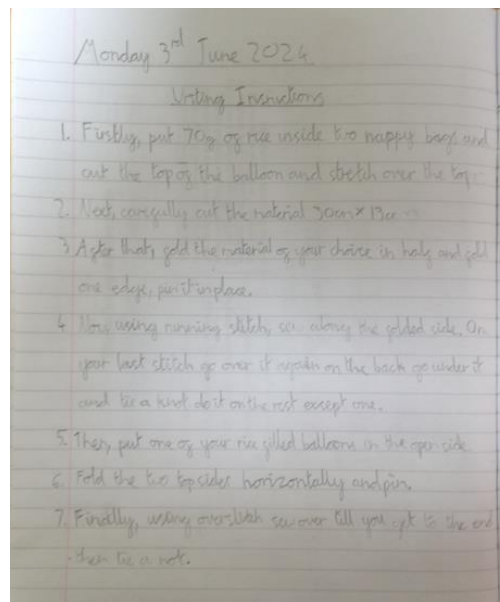 Monday 3rd June 2024
Writing Instructions
1. Firstly, put 70g of rice inside two nappy bags and
cut the top of the balloon and stretch over the top.
2. Next, carefully cut the material 30cm x 13cm
3 After that, fold the material of your choice in half and fold
one edge, pin it in place.
4 Now, using running stitch, sew along the folded side. On
your last stitch go over it again on the back go under it
and tie a knot do it on the rest except one.
5. Then, put one of your rice filled balloons in the open side
6. Fold the two top sides horizontally and pin.
7. Finally, using overstitch sew over till you get to the end
then tie a note.